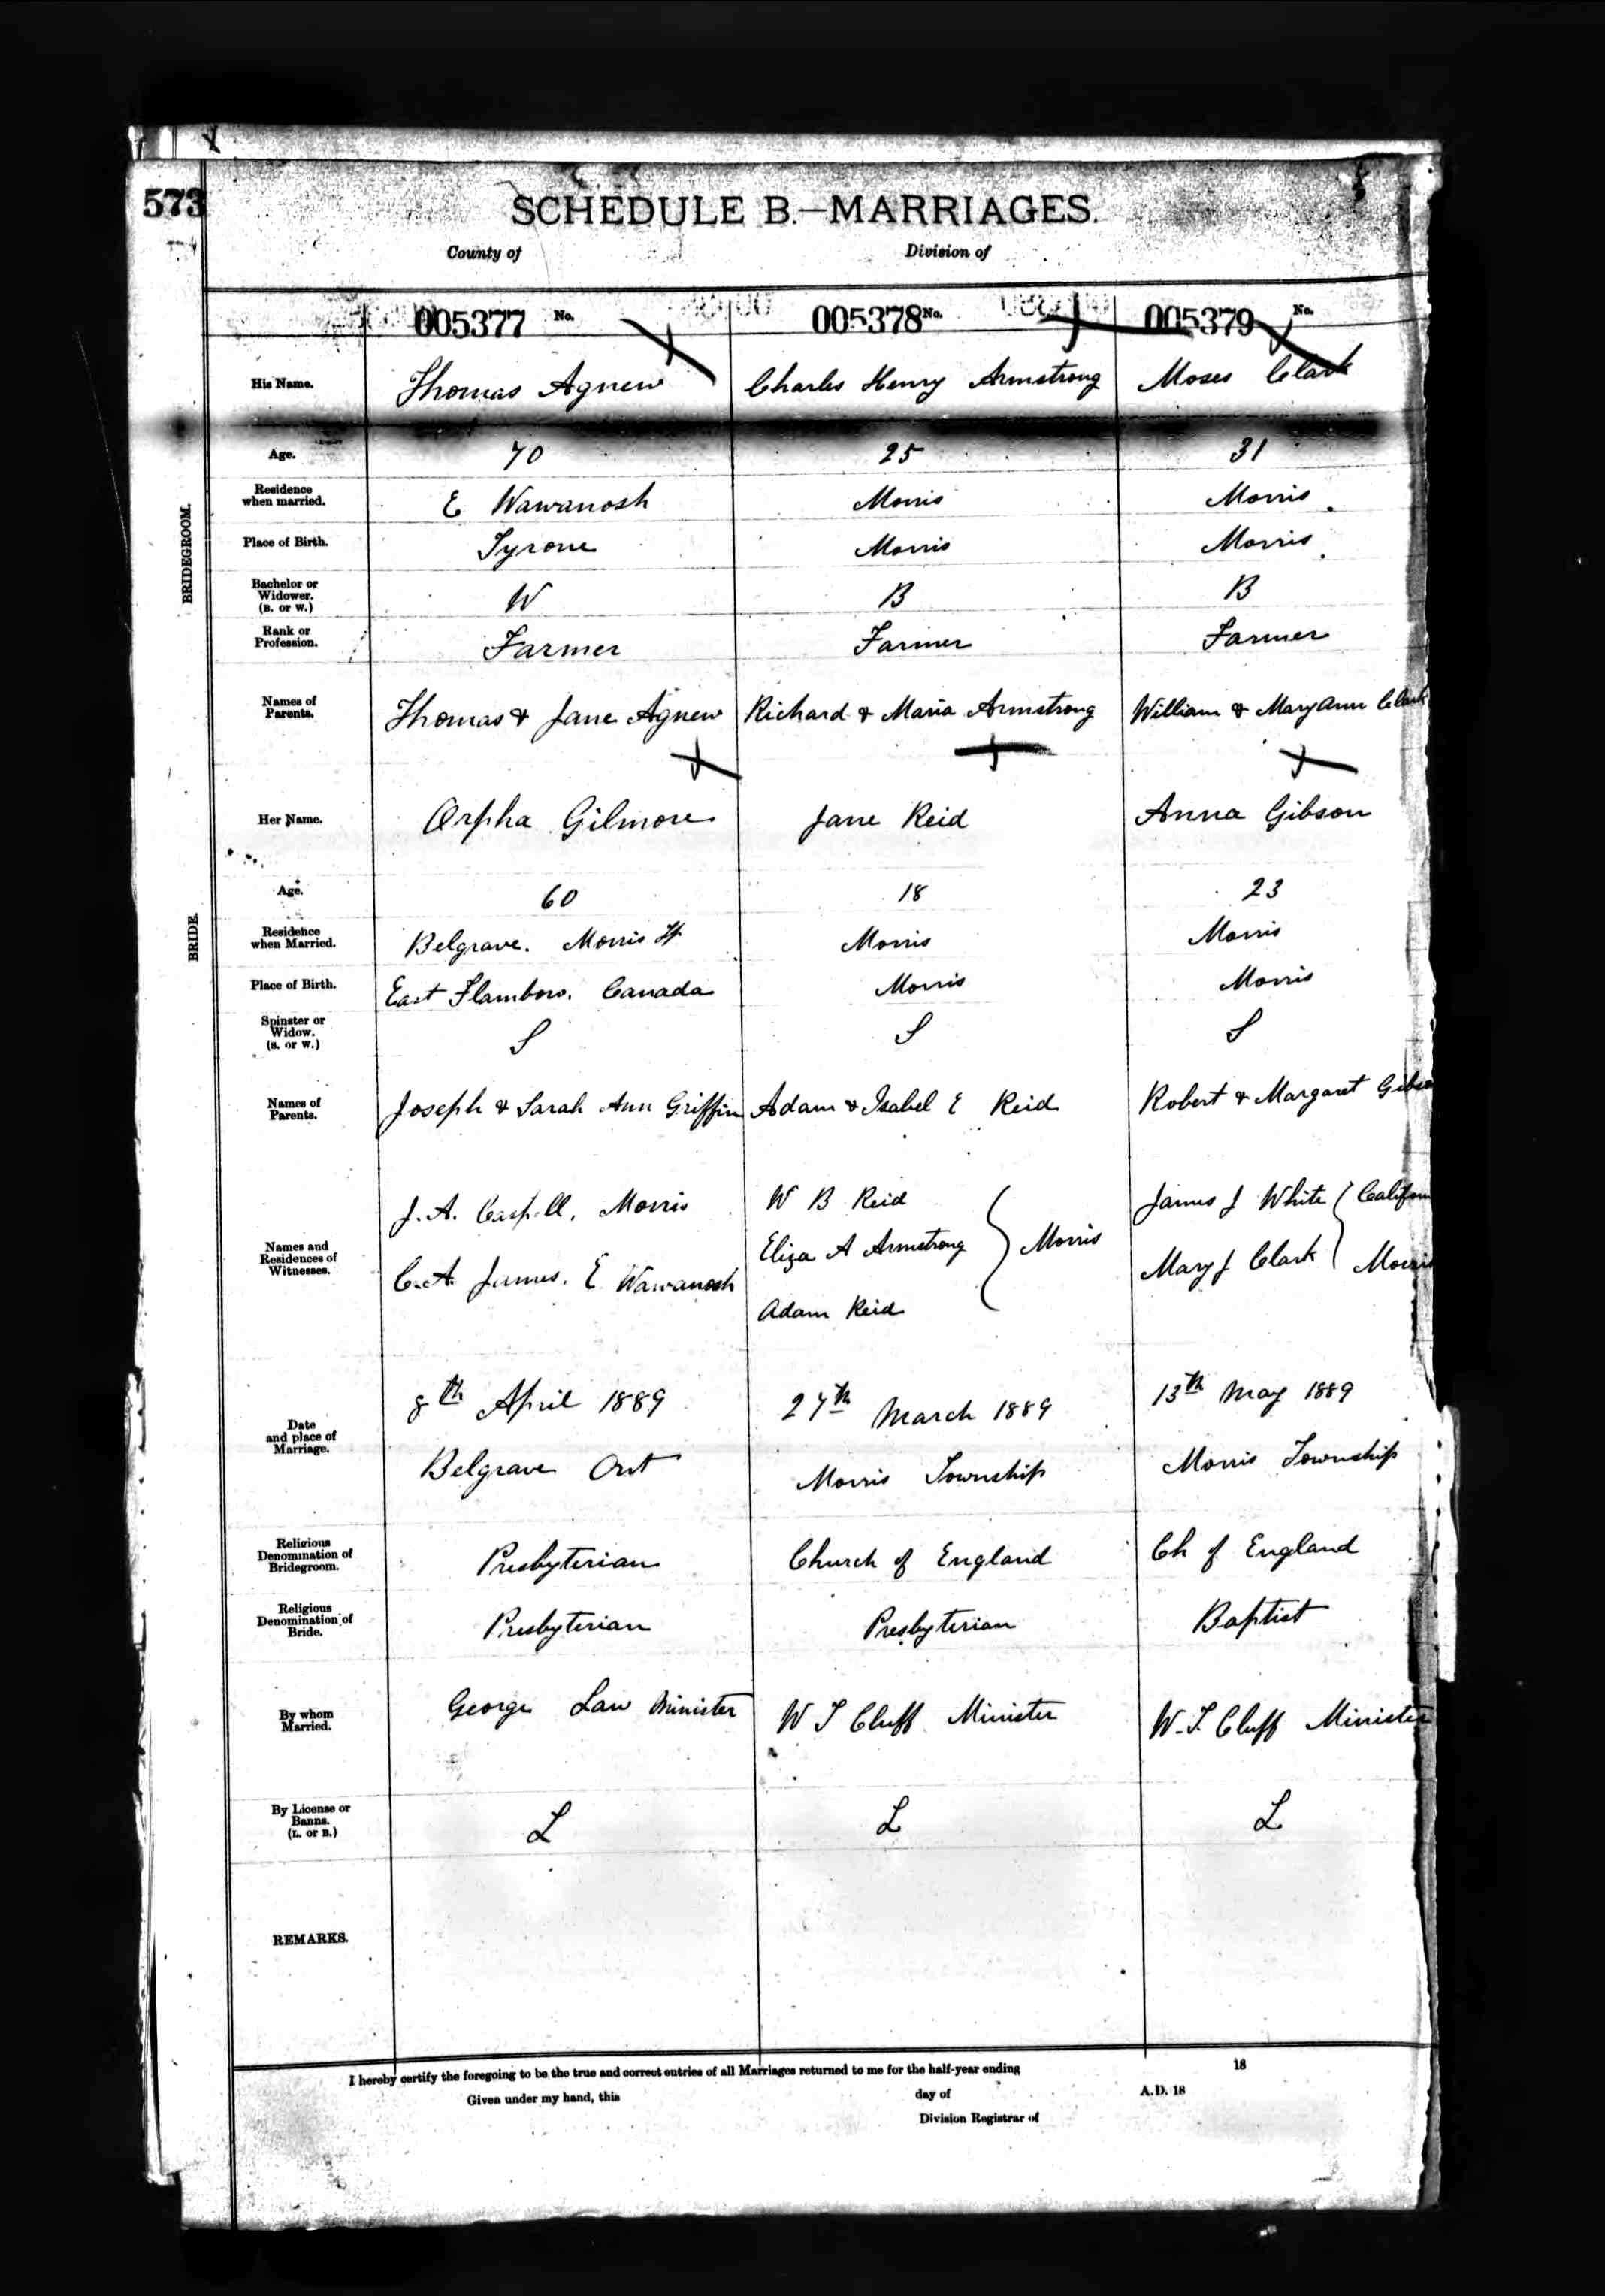 573
SCHEDULE B.—MARRIAGES.
County of Division of
005377 No. 005378 No. 005379 No.
BRIDEGROOM.
His Name. Thomas Agnew Charles Henry Armstrong Moses Clark
Age. 70 25 31
Residence when married. E Wawanosh Morris Morris
Place of Birth. Tyrone Morris Morris
Bachelor or Widower. (B. or W.) W B B
Rank or Profession. Farmer Farmer Farmer
Names of Parents. Thomas & Jane Agnew Richard & Maria Armstrong William & Mary Ann Clark
BRIDE.
Her Name. Orpha Gilmore Jane Reid Anna Gibson
Age. 60 18 23
Residence when Married. Belgrave. Morris Morris Morris
Place of Birth. East Flamboro. Canada Morris Morris
Spinster or Widow. (S. or W.) S S S
Names of Parents. Joseph & Sarah Ann Griffin Adam & Isabel E Reid Robert & Margaret
Names and Residences of Witnesses.
J. A. Morris
C. A. James. E Wawanosh
W B Reid
Eliza A Armstrong Morris
Adam Reid
James J White
Mary J Clark Morris
Date and place of Marriage.
8th April 1889 27th March 1889 13th May 1889
Belgrave Ont Morris Township Morris Township
Religious Denomination of Bridegroom. Presbyterian Church of England Ch of England
Religious Denomination of Bride. Presbyterian Presbyterian Baptist
By whom Married. George Law Minister W T Cluff Minister W. T. Cluff Minister
By License or Banns. (L. or B.) L L L
REMARKS.
I hereby certify the foregoing to be the true and correct entries of all Marriages returned to me for the half-year ending 18
Given under my hand, this day of A.D. 18
Division Registrar of